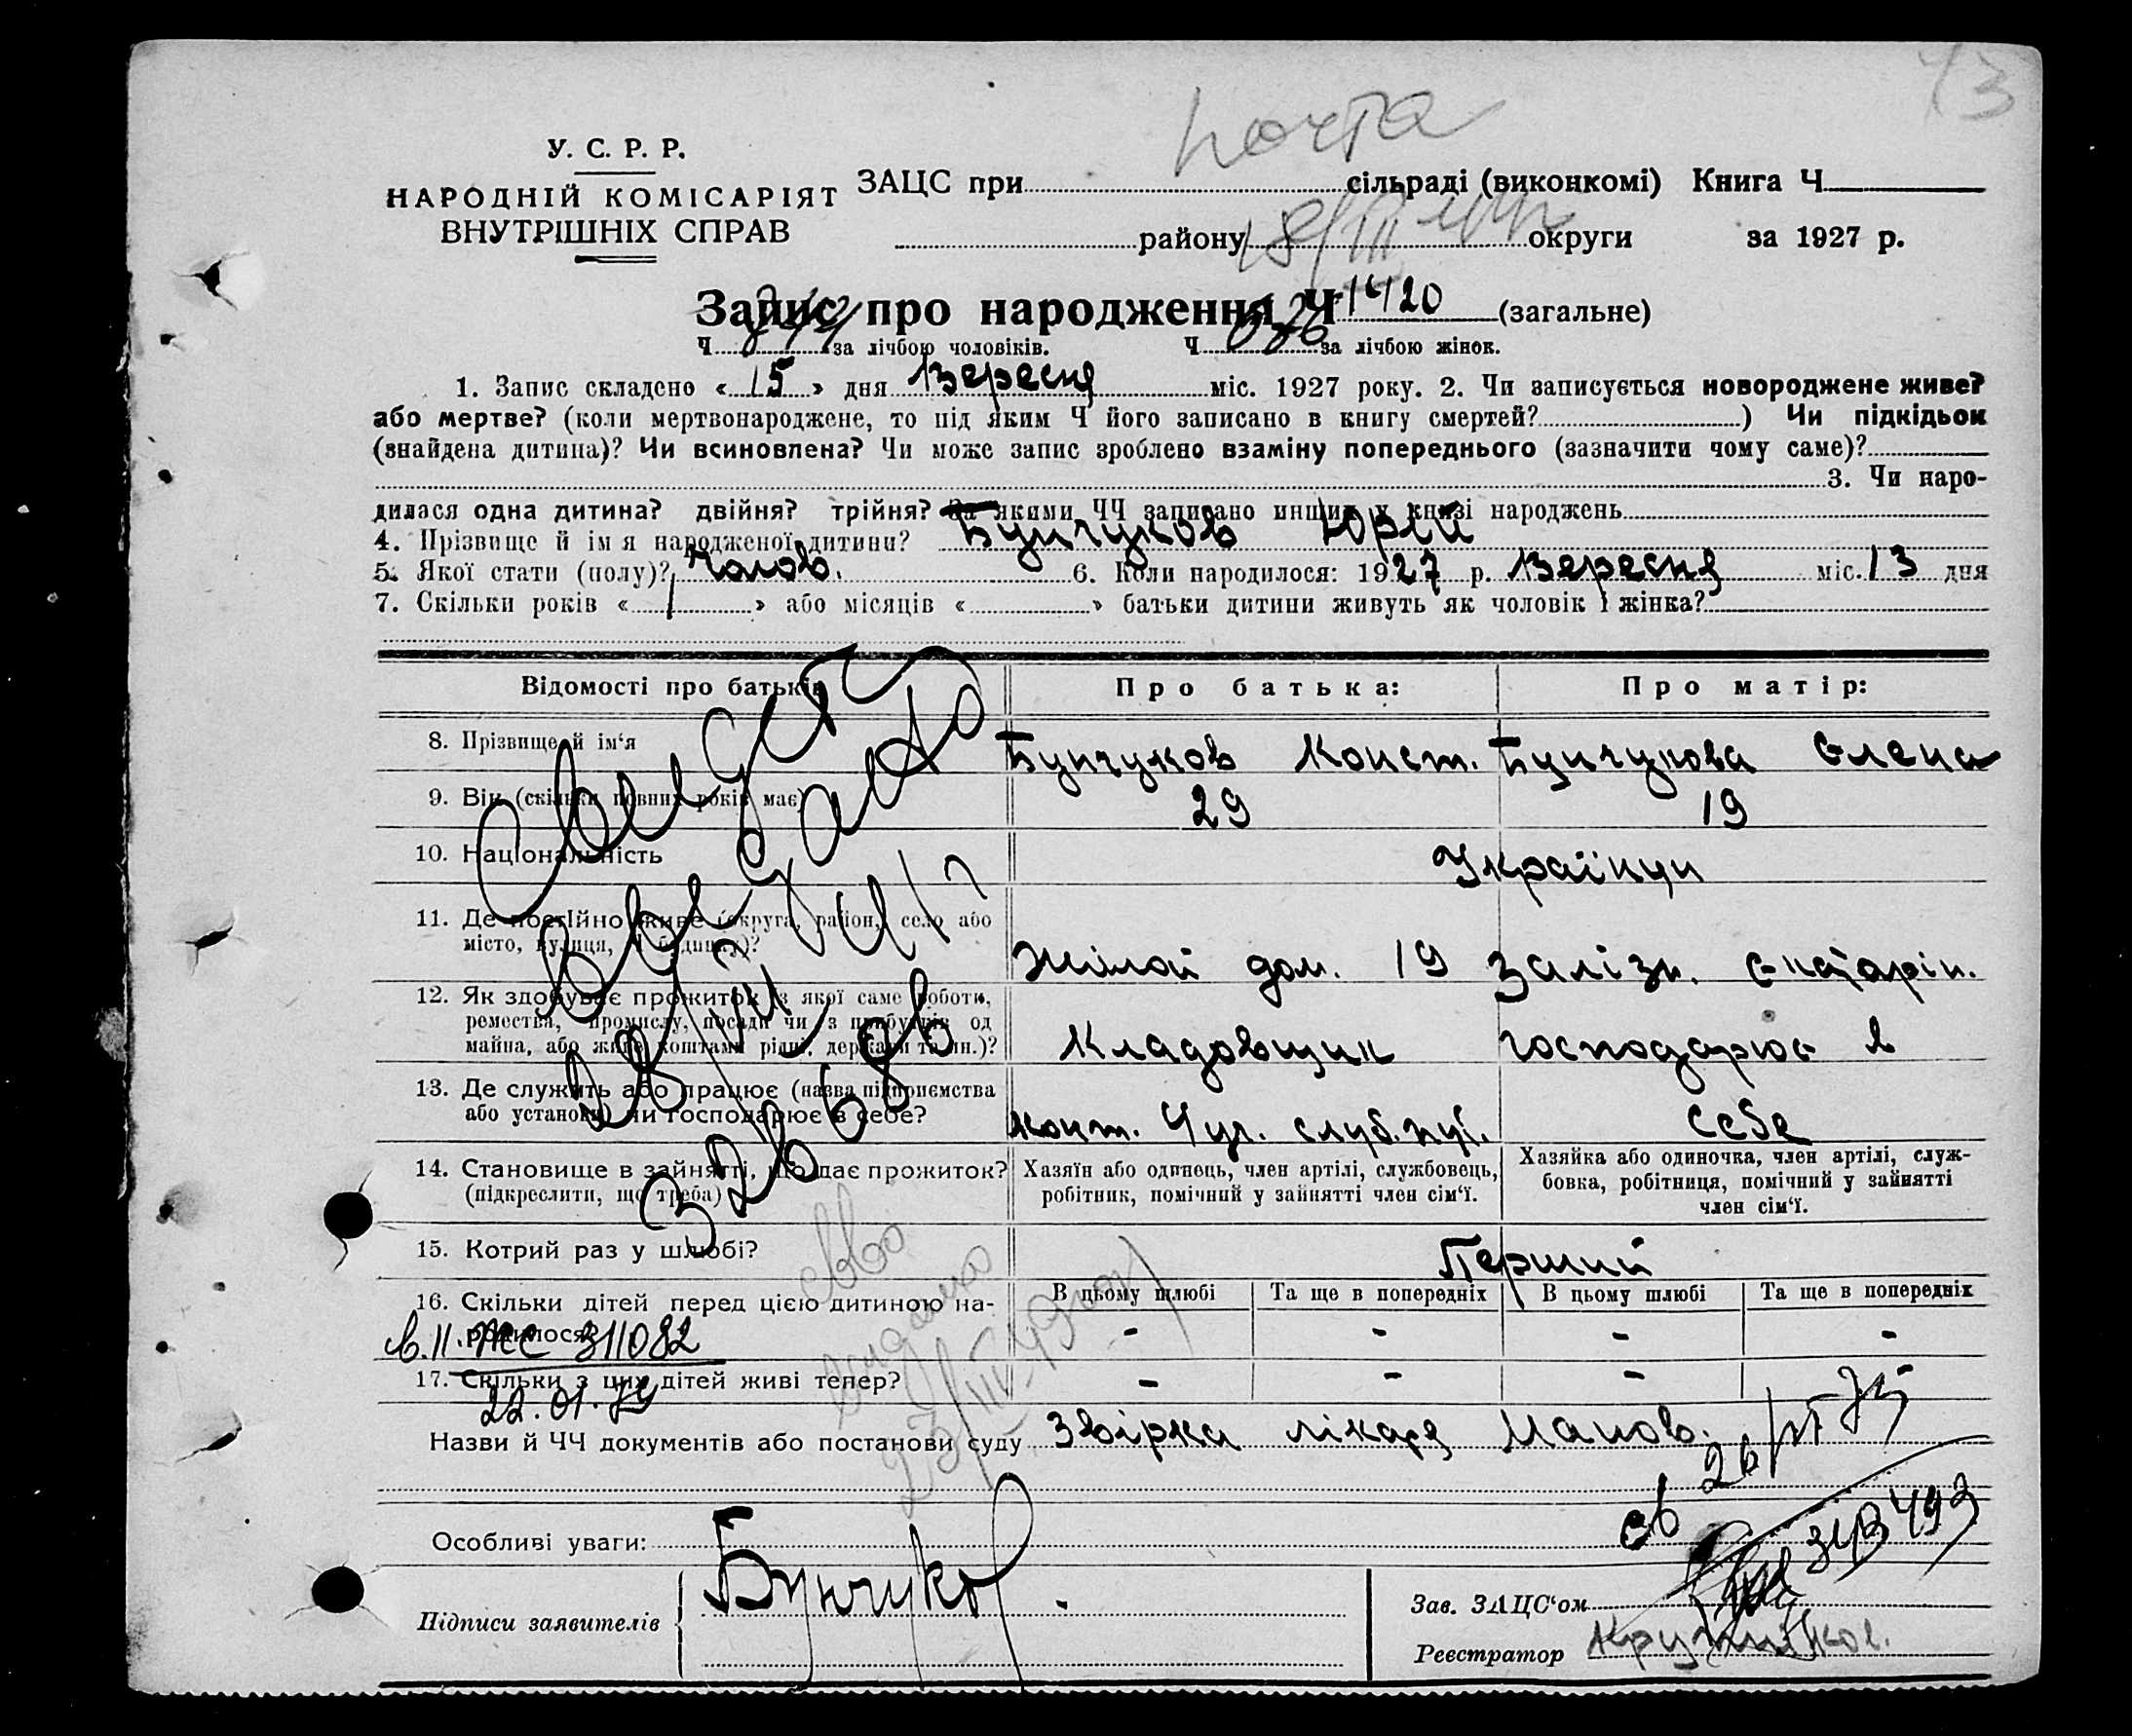 73
почта
У. С. Р. Р.
НАРОДНІЙ КОМІСАРІЯТ
ВНУТРІШНІХ СПРАВ
ЗАЦС при сільраді (виконкомі) Книга Ч
району округи за 1927 р.
Запис про народження Ч 1420 (загальне)
Ч 744 за лічбою чоловіків. Ч 676 за лічбою жінок.
1. Запис складено « 15 » дня Вересня міс. 1927 року. 2. Чи записується новороджене живе?
або мертве? (коли мертвонароджене, то під яким Ч його записано в книгу смертей? ) Чи підкідьок
(знайдена дитина)? Чи всиновлена? Чи може запис зроблено взаміну попереднього (зазначити чому саме)?
3. Чи наро-
дилася одна дитина? двійня? трійня? За якими ЧЧ записано инших у книзі народжень
4. Прізвище й ім я народженої дитини? Бунчуков Юрій
5. Якої стати (полу)? чолов. 6. Коли народилося: 1927 р. Вересня міс. 13 дня
7. Скільки років « 1 » або місяців « » батьки дитини живуть як чоловік і жінка?
Відомості про батьків Про батька: Про матір:
8. Прізвище й ім‘я Бунчуков Конст. Бунчукова Єлена
9. Вік (скільки повних років має) 29 19
10. Національність Українци
11. Де постійно живе (округа, район, село або
місто, вулиця, Ч будинку)?
Жилой дом. 19 Залізн. Єкатарін.
12. Як здобуває прожиток з якої саме роботи,
ремества, промислу, посади чи з прибутків од
майна, або живе коштами рідні, держави та ин.)?
Кладовщик господарює в
13. Де служить або працює (назва підприємства
або установи) чи господарює в себе?
конт. Ч уч. служ. путі. себе
14. Становище в зайнятті, що дає прожиток?
(підкреслити, що треба)
Хазяїн або одинець, член артілі, службовець,
робітник, помічний у зайнятті член сім‘ї.
Хазяйка або одиночка, член артілі, служ-
бовка, робітниця, помічний у зайнятті
член сім‘ї.
15. Котрий раз у шлюбі? Перший
16. Скільки дітей перед цією дитиною на-
родилося?
В цьому шлюбі Та ще в попередніх В цьому шлюбі Та ще в попередніх
- - - -
в. II. ЖС 311082
17. Скільки з цих дітей живі тепер? - - - -
22.01.79
Назви й ЧЧ документів або постанови суду Звірка лікаря
Особливі уваги:
св
Підписи заявителів Бунчуков
Зав. ЗАЦС‘ом
Реєстратор